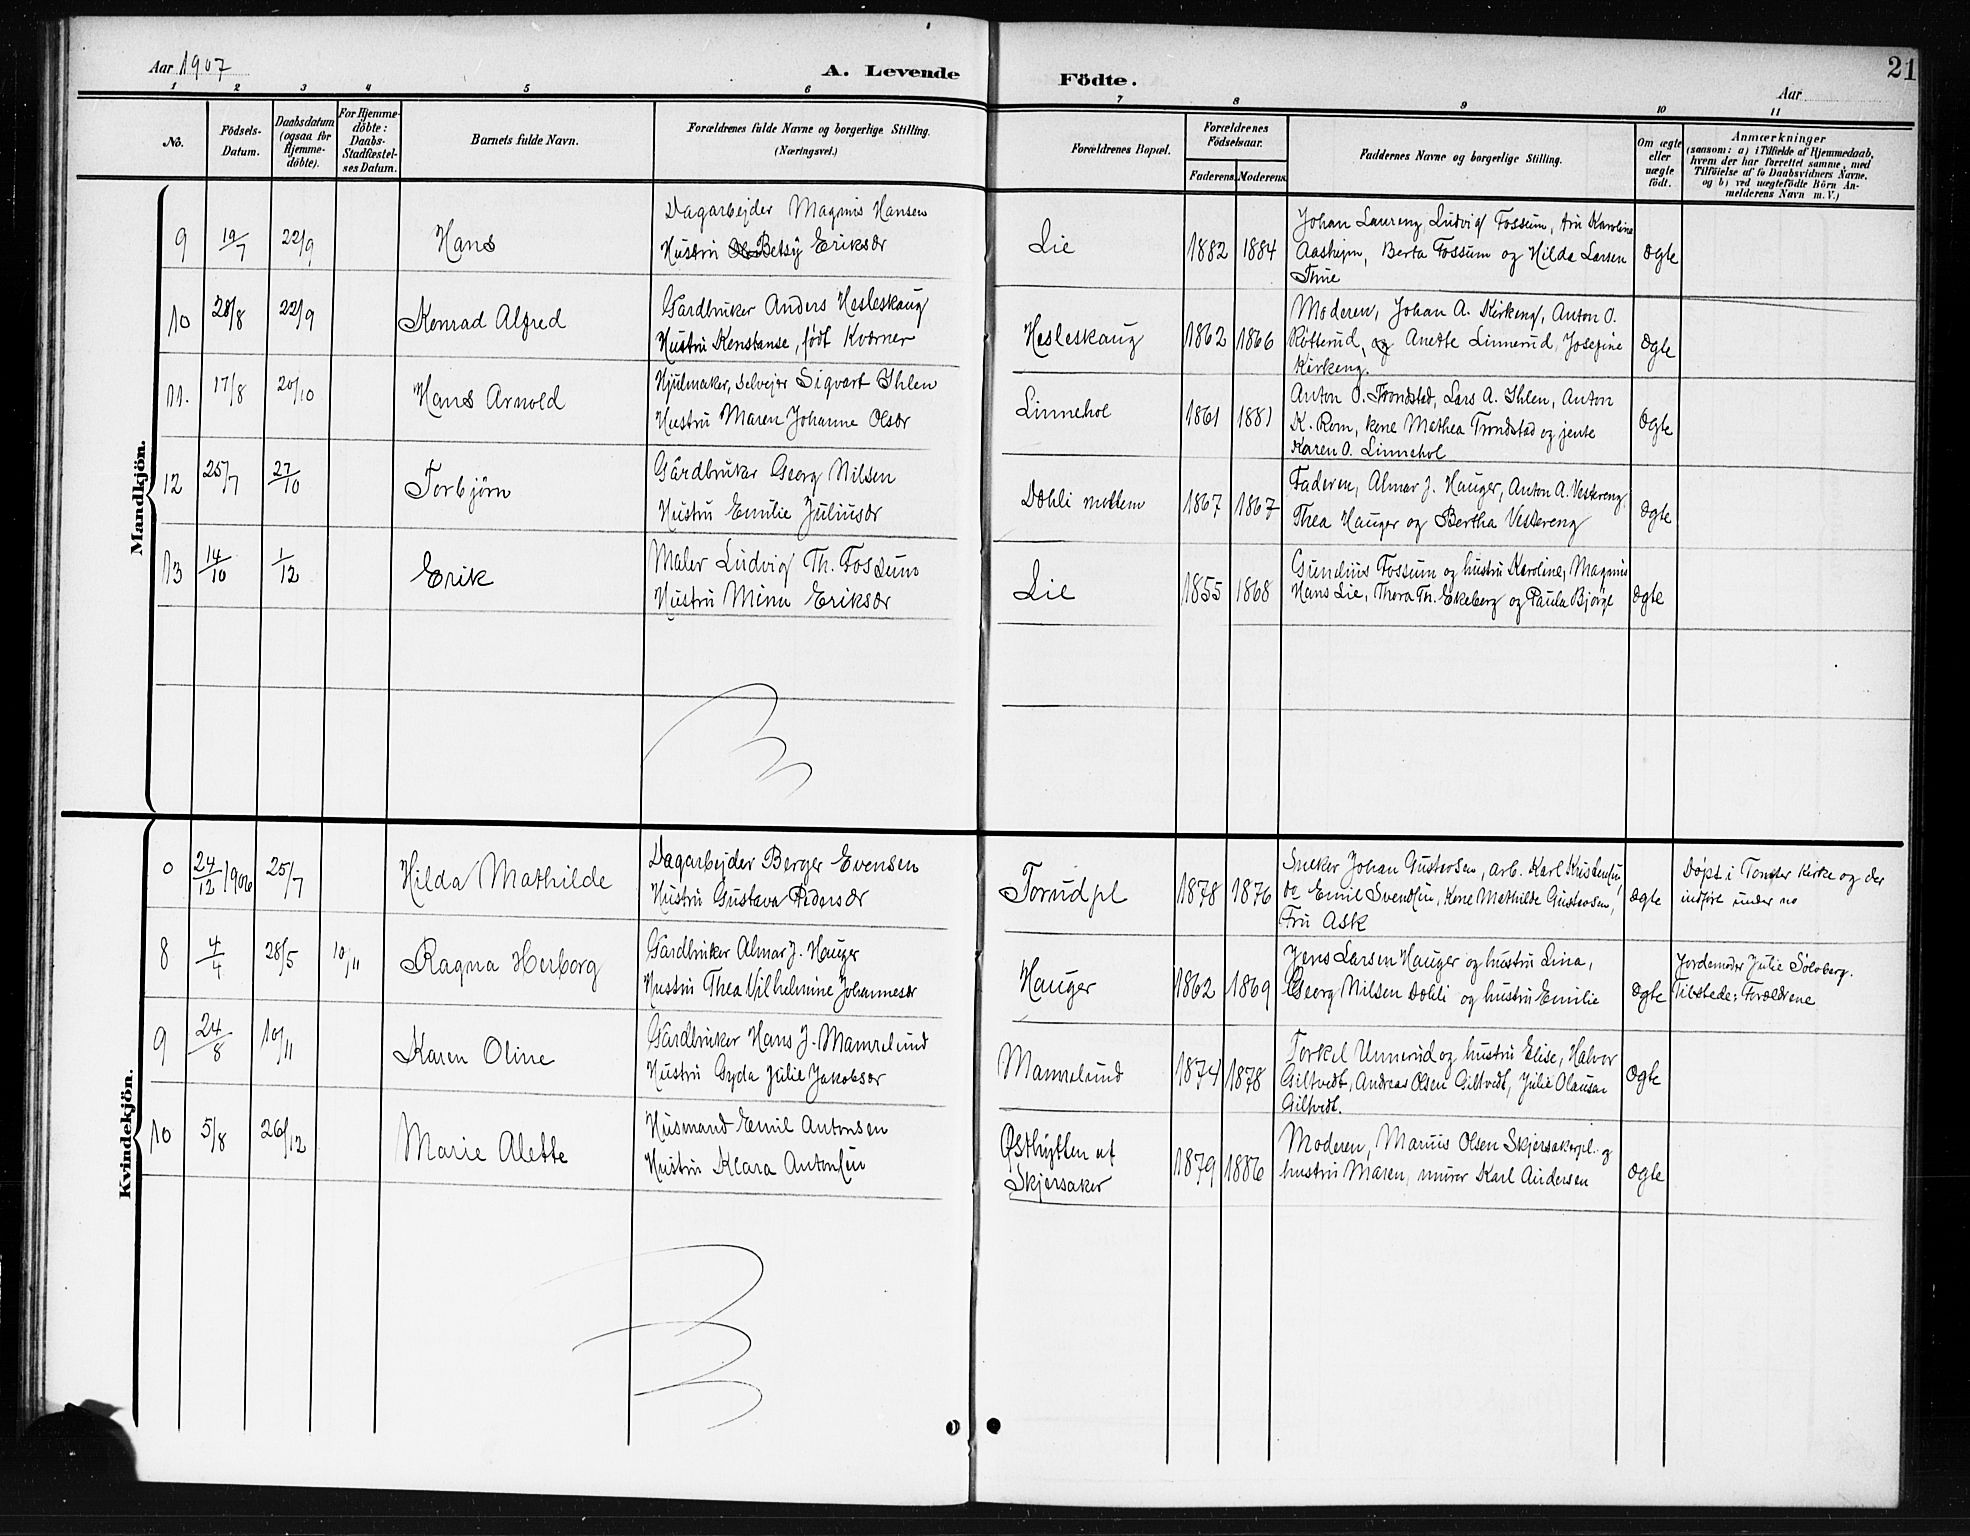 Aar 1907
A. Levende Födte.
21
Aar
1 2 3 4 5 6 7 8 9 10 11
No.
Födsels-Datum.
Daabsdatum (ogsaa for Hjemmedöbte).
For Hjemmedöbte: Daabs-Stadfæstelses Datum.
Barnets fulde Navn.
Forældrenes fulde Navne og borgerlige Stilling.
(Næringsvei.)
Forældrenes Bopæl.
Forældrenes Födselsaar.
Faderens. Moderens.
Faddernes Navne og borgerlige Stilling.
Om ægte eller uægte födt.
Anmærkninger
(saasom: a) i Tilfælde af Hjemmedaab,
hvem der har forrettet samme, med
Tilföielse af to Daabsvidners Navne.
og b) ved uægtefödte Börn An-
melderens Navn m. V.)
Mandkjön.
9 19/7 22/9 Hans
Dagarbejder Magnus Hansen
Hustru Betsy Eriksdr
Lie 1882 1884
Johan Laurenz Ludvig Fossum, fru Karoline
Aasheim, Berta Fossum og Hilda Larsen
Thue
ægte
10 28/8 22/9 Konrad Alfred
Gårdbruker Anders Hesleskaug
Hustru Konstanse, født Kværner
Hesleskaug 1862 1866
Moderen, Johan A. Kirkeng, Anton O.
Røtterud, og Anette Linnerud, Josefine
Kirkeng.
ægte
11. 17/8 20/10 Hans Arnold
Hjulmaker, selvejer Sigvart Ihlen
Hustru Maren Johanne Olsdr
Linnehol 1861 1881
Anton O. Trondstad, Lars A. Ihlen, Anton
K. Rom, kone Mathea Trondstad og jente
Karen O. Linnehol
ægte
12 25/7 27/10 Torbjørn
Gårdbruker Georg Nilsen
Hustru Emilie Juliusdr
Dæhli mellem 1867 1867
Faderen, Almar J. Hauger, Anton A. Vestereng
Thea Hauger og Bertha Vestereng
ægte
13 14/10 1/12 Erik
Maler Ludvig Th. Fossum
Hustru Mina Eriksdr
Lie 1855 1868
Gundius Fossum og hustru Karoline, Magnus
Hans Lie, Thora Th. Ekeberg og Paula Bjørge
ægte
Kvindekjön.
0 24/12 1906 25/7 Hilda Mathilde
Dagarbejder Berger Evensen
Hustru Gustava Pedersdr
Torudpl 1878 1876
Sneker Johan Gustavsen, arb. Karl Kristensen,
og Emil Svendsen, Kone Mathilde Gustavsen,
Fru Ask
ægte
Døpt i Tomter Kirke og der
indført under no
8 4/4 28/5 10/11 Ragna Herborg
Gårdbruker Almar J. Hauger
Hustru Thea Vilhelmine Johannesdr
Hauger 1862 1869
Jens Larsen Hauger og hustru Lina,
Georg Nilsen Dæhli og hustru Emilie
ægte
Jordemoder Julie Solberg.
Tilstede: Forældrene
9 24/8 10/11 Karen Oline
Gårdbruker Hans J. Mamrelund
Hustru Gyda Julie Jakobsdr
Mamrelund 1874 1878
Torkel Unnerud og hustru Elise, Halvor
Giltvedt, Andreas Olsen Giltvedt, Julie Olausdr
Giltvedt.
ægte
10 5/8 26/12 Marie Alette
Husmand Emil Antonsen
Hustru Klara Antonsen
Østhytten af
Skjersaker
1879 1886
Moderen, Marius Olsen Skjersakerpl. og
hustru Maren, murer Karl Andersen
ægte